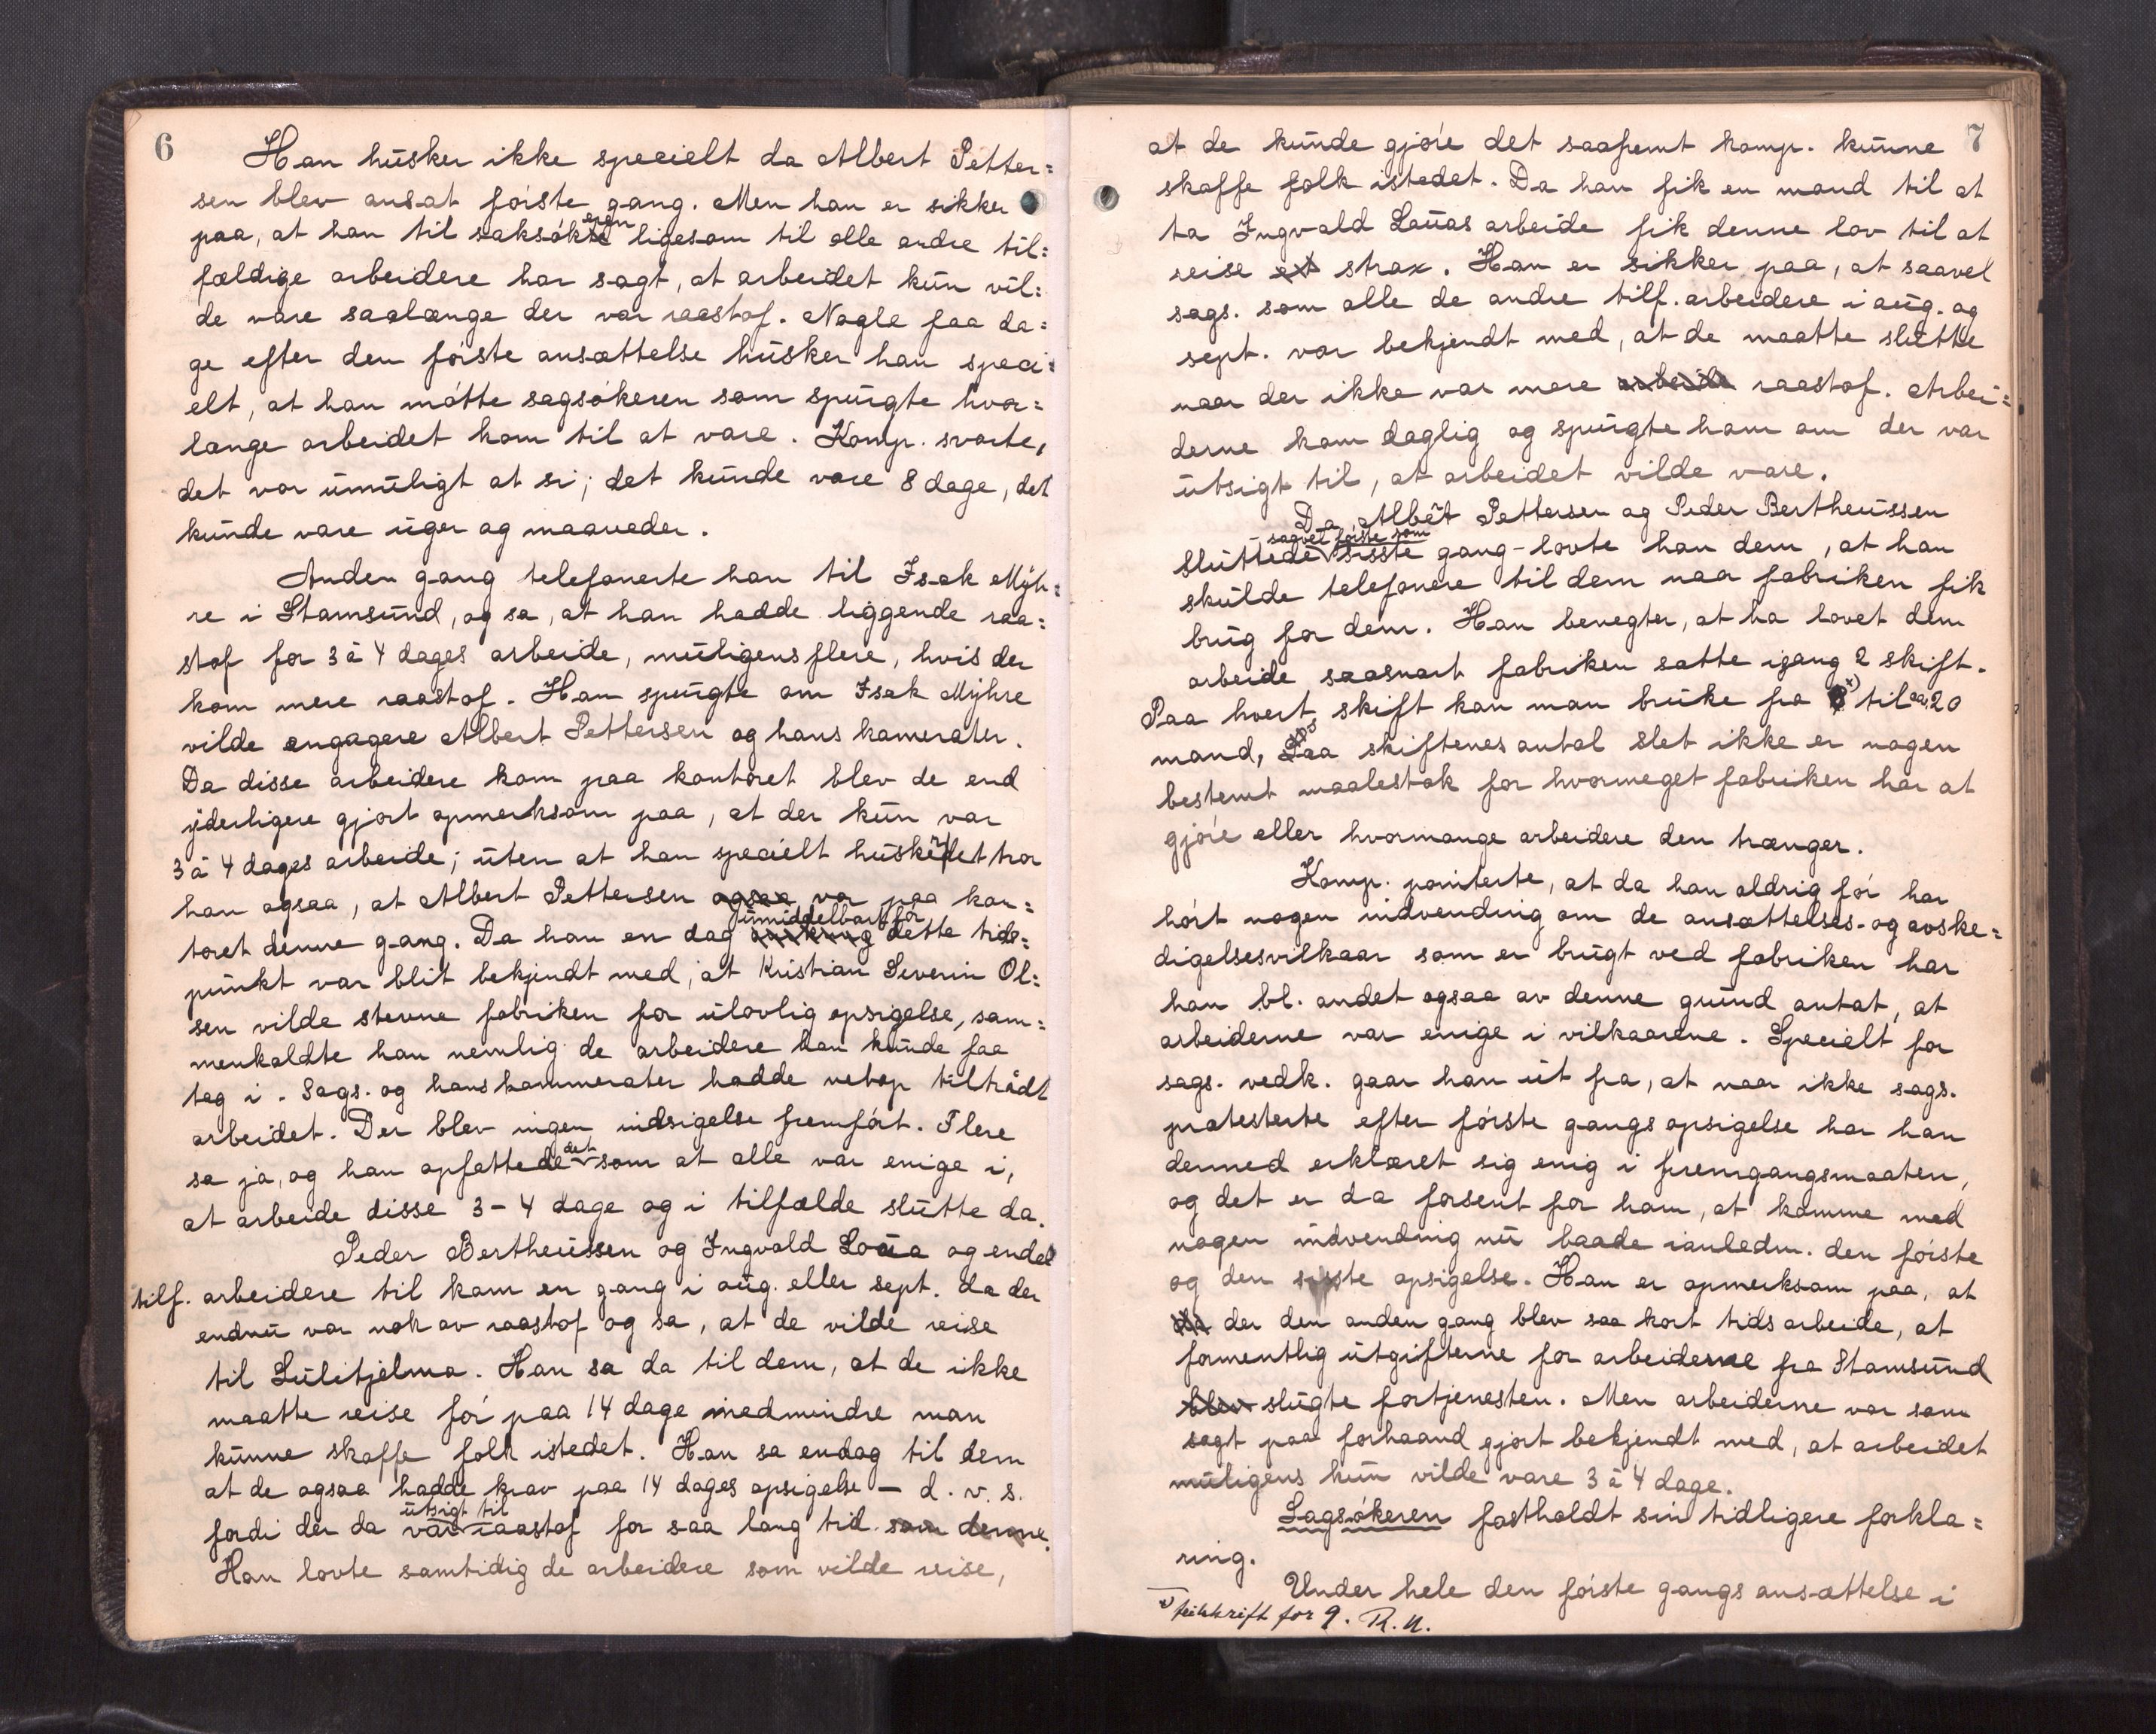 6
Han husker ikke specielt da Albert Petter=
sen blev ansat første gang. Men han er sikker
paa, at han til saksøkeren ligesom til alle andre til=
fældige arbeidere har sagt, at arbeidet kun vil=
de vare saalænge der var raastof. Nogle faa da=
ge efter den første ansættelse husker han speci=
elt, at han møtte sagsøkeren som spurgte hvor=
længe arbeidet kom til at vare. Komp. svarte,
det var umuligt at si; det kunde vare 8 dage, det
kunde vare uger og maaneder.
Anden gang telefonerte han til Isak Myh=
re i Stamsund, og sa, at han hadde liggende raa=
stof for 3 à 4 dages arbeide, muligens flere, hvis der
kom mere raastof. Han spurgte om Isak Myhre
vilde engagere Albert Pettersen og hans kamerater.
Da disse arbeidere kom paa kontoret blev de end
yderligere gjort opmerksom paa, at der kun var
3 à 4 dages arbeide; uten at han specielt husker det tror
han ogsaa, at Albert Pettersen ogsaa var paa kon=
toret denne gang. Da han en dag umiddelbart før dette tids=
punkt var blit bekjendt med, at Kristian Severin Ol=
sen vilde stevne fabriken for ulovlig opsigelse, sam=
menkaldte han nemlig de arbeidere han kunde faa
tag i. Sags. og hans kammerater hadde netop tiltrådt
arbeidet. Der blev ingen indsigelse fremført. Flere
sa ja, og han opfattede det som at alle var enige i,
at arbeide disse 3-4 dage og i tilfælde slutte da.
Peder Bertheussen og Ingvald Loua og endel
tilf. arbeidere til kom en gang i aug. eller sept. da der
endnu var nok av raastof og sa, at de vilde reise
til Sulitjelma. Han sa da til dem, at de ikke
maatte reise før paa 14 dage medmindre man
kunne skaffe folk istedet. Han sa endog til dem
at de ogsaa hadde krav paa 14 dages opsigelse - d. v. s.
fordi der da var utsigt til raastof for saa lang tid som denne.
Han lovte samtidig de arbeidere som vilde reise,
7
at de kunde gjøre det saafremt komp. kunne
skaffe folk istedet. Da han fik en mand til at
ta Ingvald Louas arbeide fik denne lov til at
reise et strax. Han er sikker paa, at saavel
sags. som alle de andre tilf. arbeidere i aug. og
sept. var bekjendt med, at de maatte slutte
naar der ikke var mere arbeide raastof. Arbei=
derne kom daglig og spurgte ham om der var
utsigt til, at arbeidet vilde vare.
Da Albert Pettersen og Peder Bertheussen
sluttede saavel første som sisste gang - lovte han dem, at han
skulde telefonere til dem naar fabriken fik
brug for dem. Han benegter, at ha lovet dem
arbeide saasnart fabriken satte igang 2 skift.
Paa hvert skift kan man bruke fra x) til ca. 20
mand, saa skiftenes antal slet ikke er nogen
bestemt maalestok for hvormeget fabriken har at
gjøre eller hvormange arbeidere den trænger.
Komp. pointerte, at da han aldrig før har
hørt nogen indvending om de ansættelses- og avske=
digelsesvilkaar som er brugt ved fabriken har
han bl. andet ogsaa av denne grund antat, at
arbeiderne var enige i vilkaarene. Specielt for
sags. vedk. gaar han ut fra, at naar ikke sags.
protesterte efter første gangs opsigelse har han
dermed erklæret sig enig i fremgangsmaaten,
og det er da forsent for ham, at komme med
nogen indvending nu baade ianledn. den første
og den siste opsigelse. Han er opmerksom paa, at
da der den anden gang blev saa kort tids arbeide, at
formentlig utgifterne for arbeiderne fra Stamsund
blev slugte fortjenesten. Men arbeiderne var som
sagt paa forhaand gjort bekjendt med, at arbeidet
muligens kun vilde vare 3 à 4 dage.
Sagsøkeren fastholdt sin tidligere forkla=
ring.
Under hele den første gangs ansættelse i
x) feilskrift for 9. R.N.